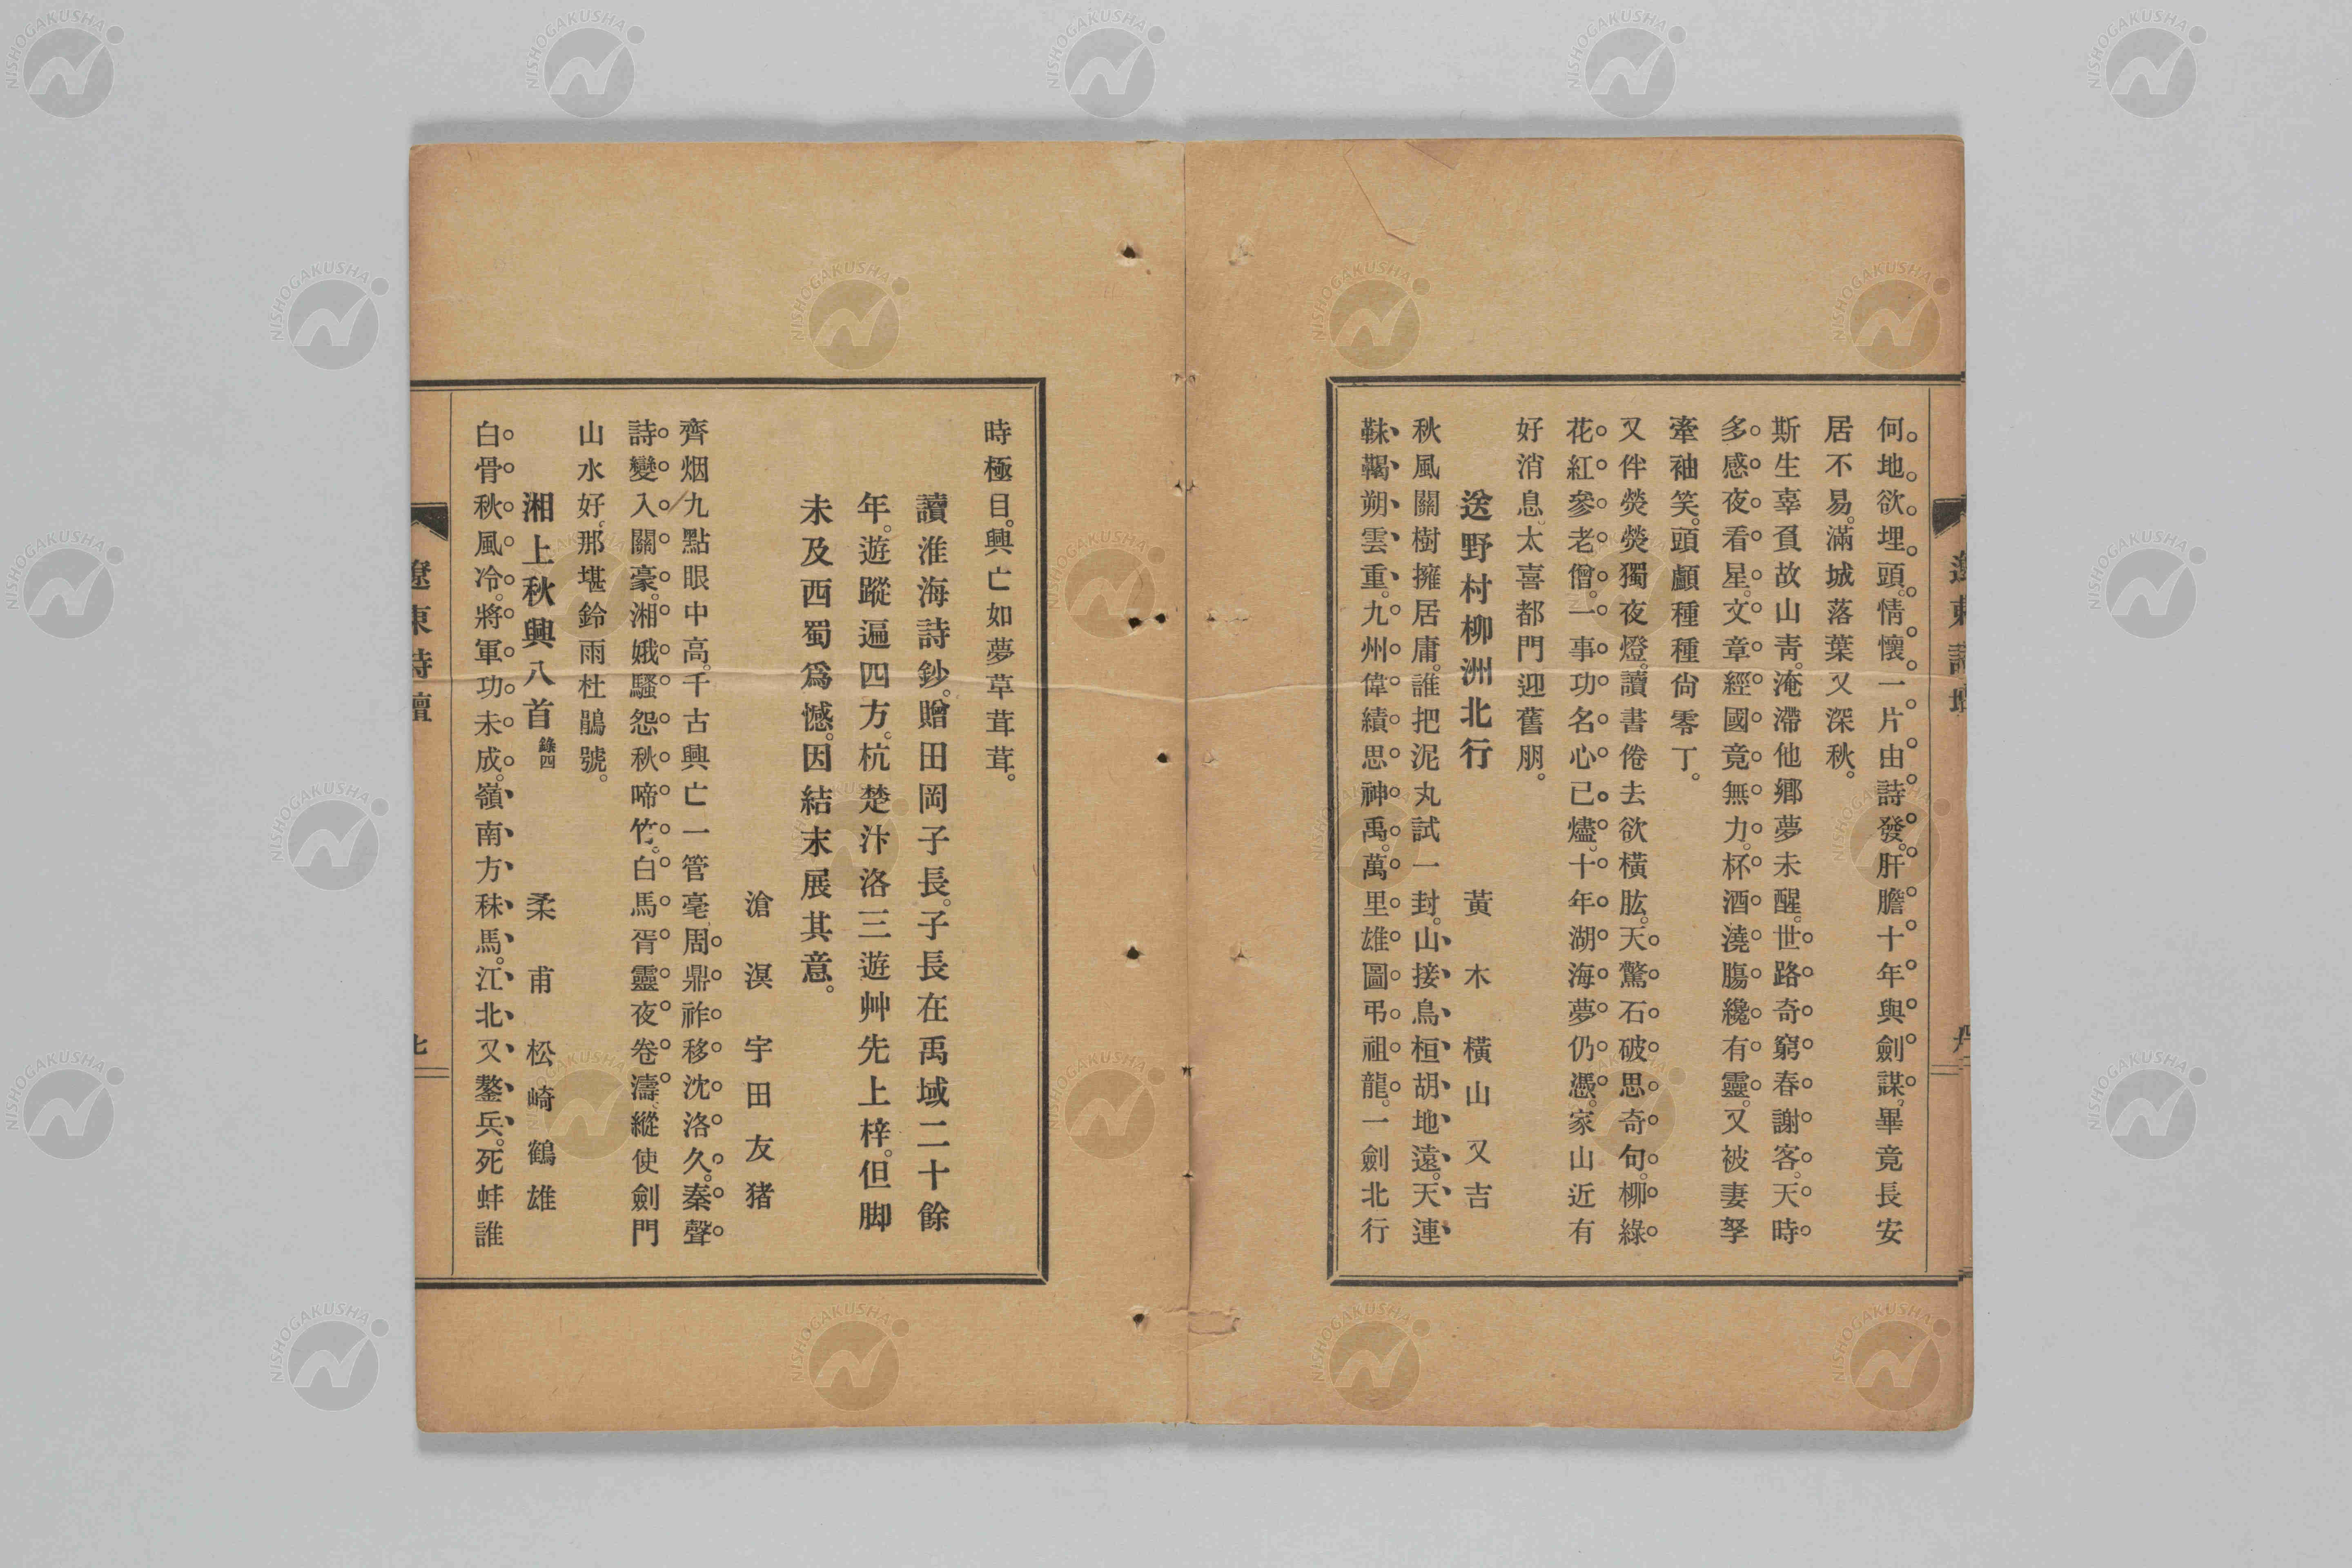 何地欲埋頭。情懷一片由詩發。肝膽十年與劍謀。畢竟長安
居不易。滿城落葉又深秋。
斯生辜負故山靑。淹滯他鄉夢未醒。世路奇窮春謝客。天時
多感夜看星。文章經國竟無力。杯酒澆膓纔有靈。又被妻孥
牽袖笑。頭顱種種尙零丁。
又伴熒熒獨夜燈。讀書倦去欲橫肱。天驚石破思奇句。柳綠
花紅參老僧。一事功名心已燼。十年湖海夢仍憑。家山近有
好消息。太喜都門迎舊朋。
送野村柳洲北行
黃木 橫山又吉
秋風關樹擁居庸。誰把泥丸試一封。山接烏桓胡地遠。天連
靺鞨朔雲重。九州偉績思神禹。萬里雄圖弔祖龍。一劍北行
時極目。興亡如夢草茸茸。
讀淮海詩鈔。贈田岡子長。子長在禹域二十餘
年。遊蹤遍四方。杭楚汴洛三遊艸先上梓。但脚
未及西蜀爲憾。因結末展其意。
滄溟 宇田友猪
齊烟九點眼中高。千古興亡一管毫。周鼎祚移沈洛久。秦聲
詩變入關豪。湘娥騷怨秋啼竹。白馬胥靈夜卷濤。縱使劍門
山水好。那堪鈴雨杜鵑號。
湘上秋興八首 錄四
柔甫 松崎鶴雄
白骨秋風冷。將軍功未成。嶺南方秣馬。江北又鏊兵。死蚌誰
遼東詩壇
七